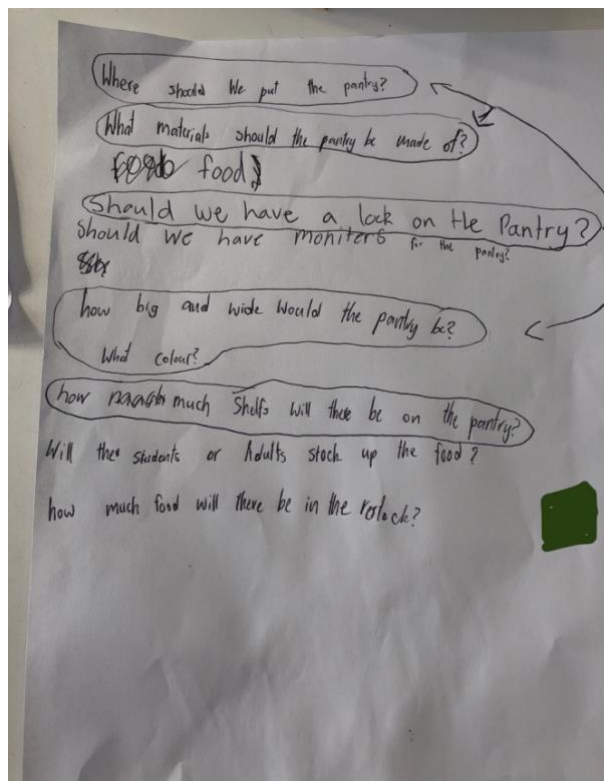 Where should we put the pantry?
What materials should the pantry be made of?
food
Should we have a lock on the Pantry?
Should we have moniters for the pantry?
how big and wide would the pantry be?
What colour?
how much Shelfs will there be on the pantry?
Will students or Adults stock up the food?
how much food will there be in the restock?